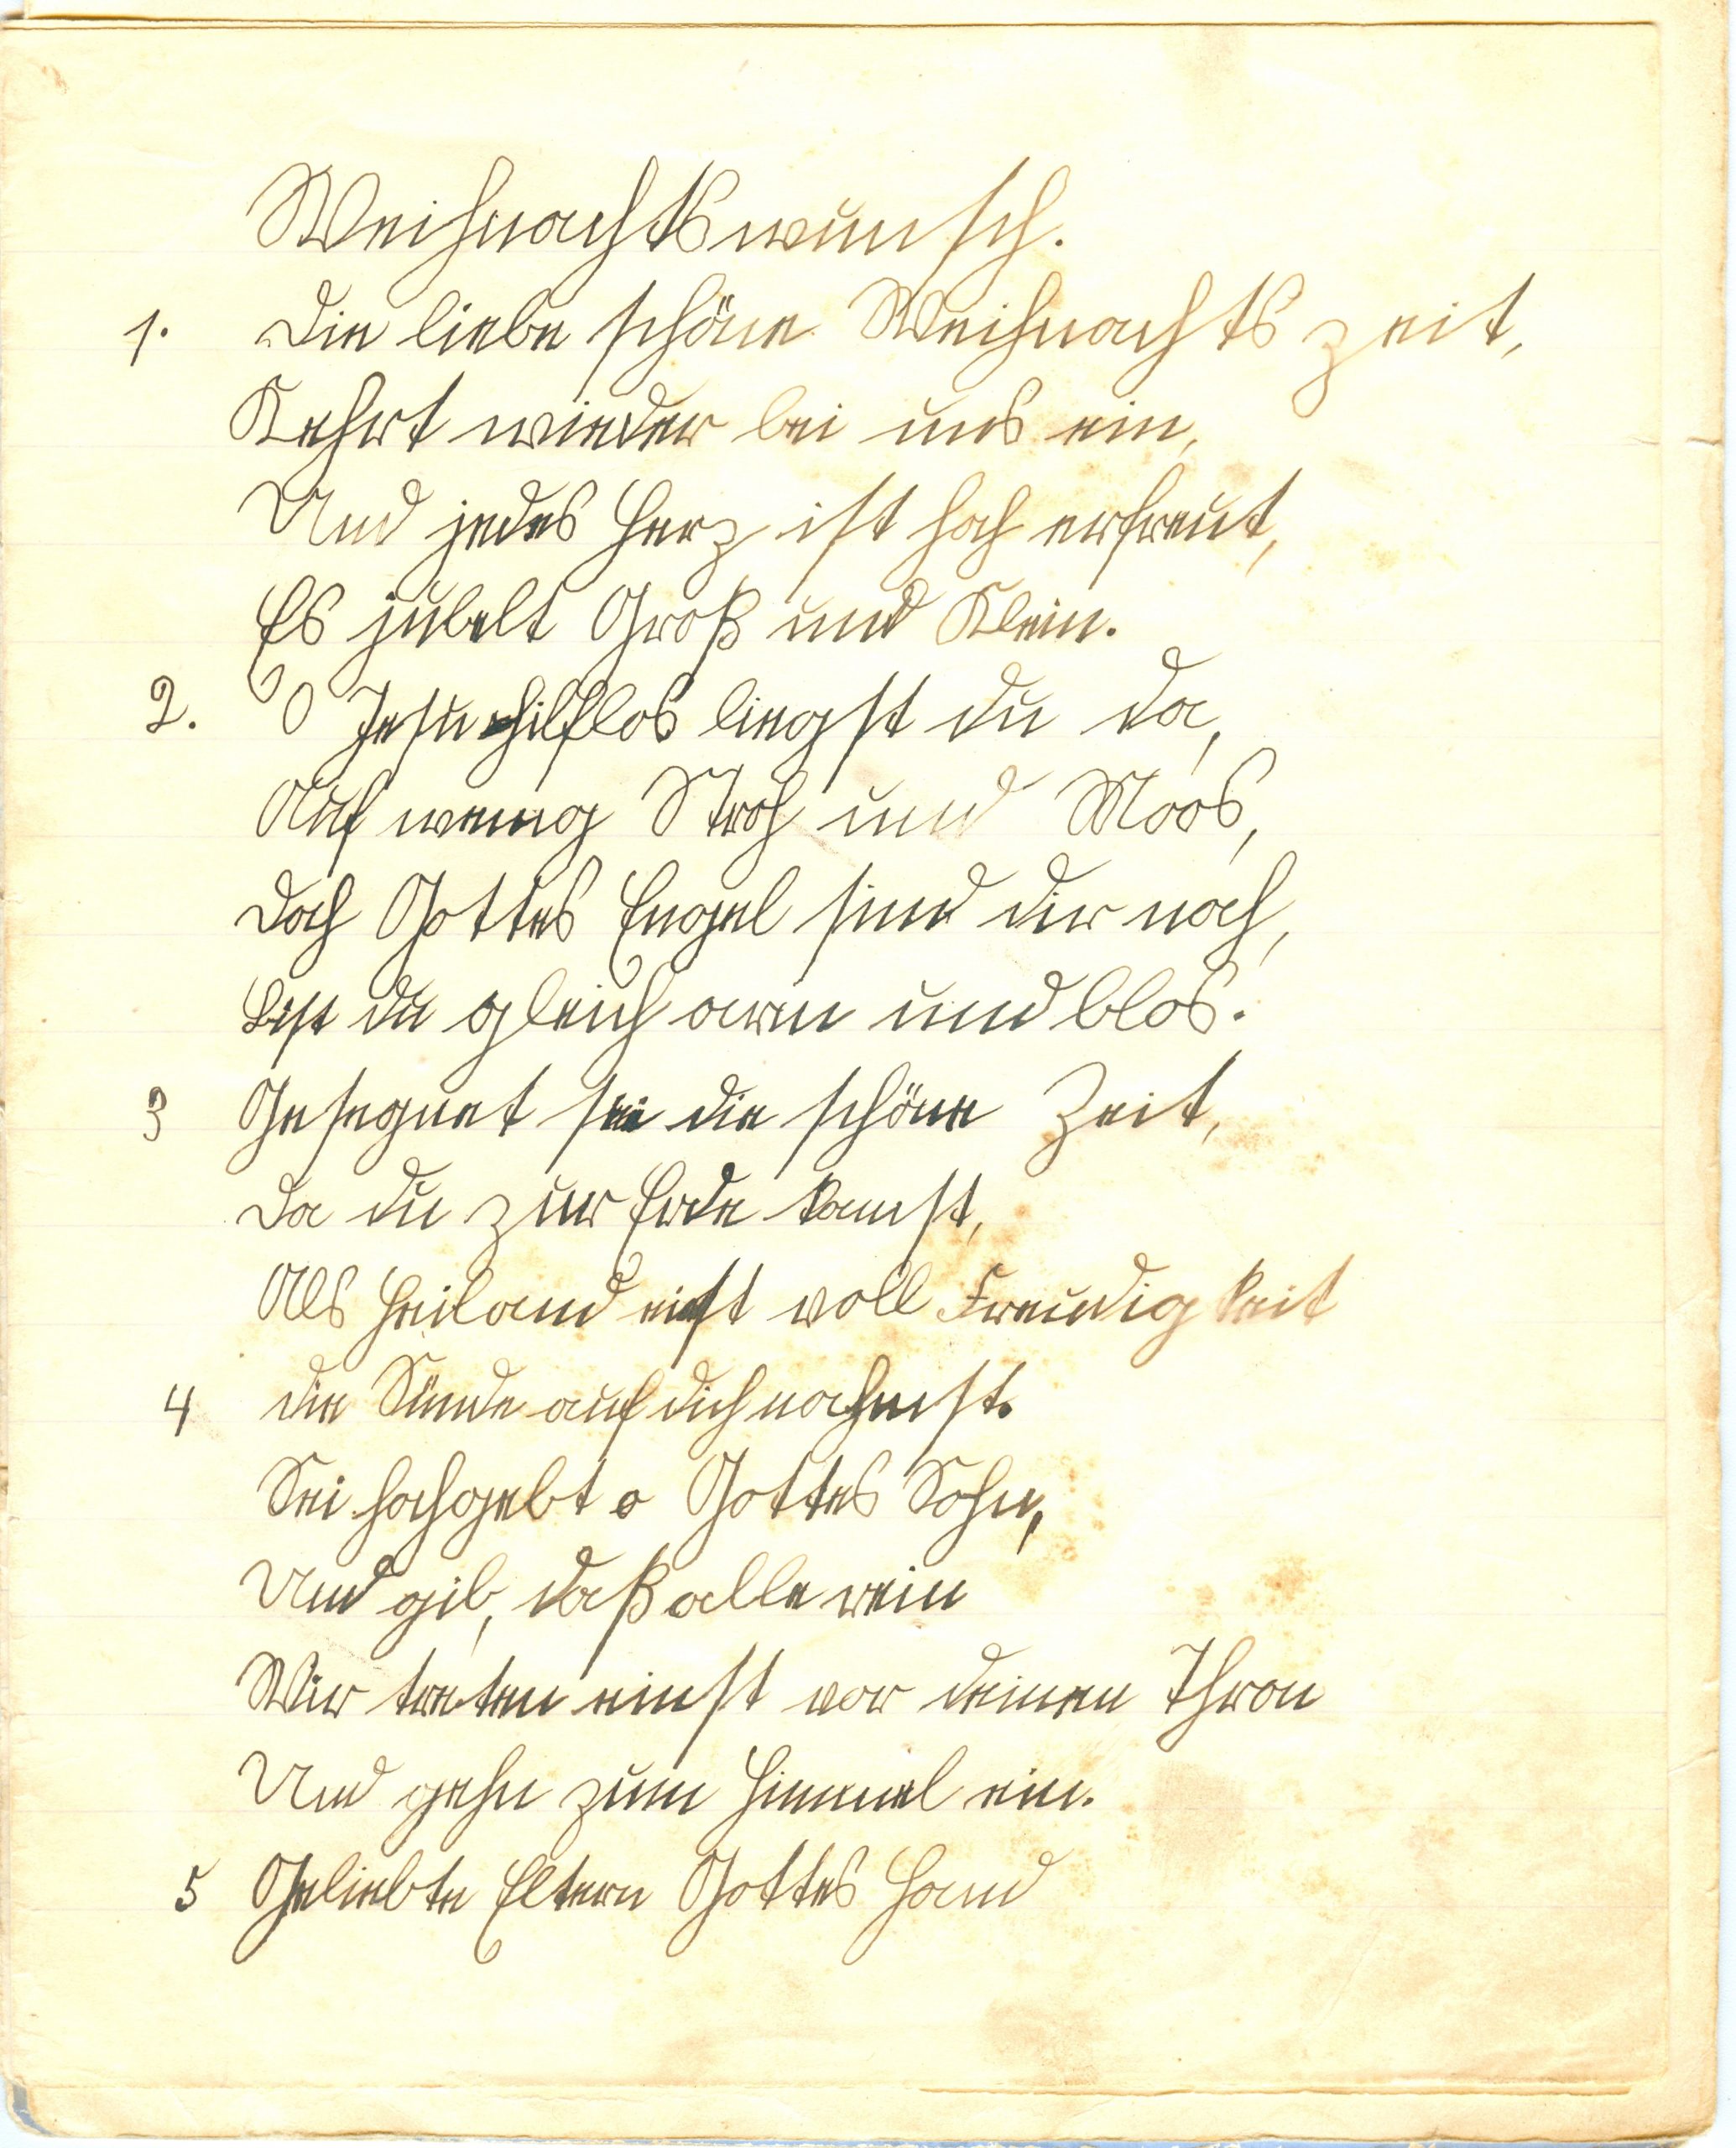 Weihnachtswunsch.
1. Die liebe schöne Weihnachtszeit,
Kehrt wieder bei uns ein,
Und jedes Herz ist hoch erfreut,
Es jubelt Groß und Klein.
2. O Jesu hilflos liegst du da,
Auf wenig Stroh und Moos,
Doch Gottes Engel sind dir noch,
Bist du gleich arm und blos.
3 Gesegnet sei die schöne Zeit,
Da du zur Erde kamst,
Als Heiland einst voll Freudigkeit
4 die Sünde auf dich nahmst.
Sei hochgebt o Gottes Sohn,
Und gib, daß alle rein
Wir treten einst vor deinen Thron
Und gehn zum Himmel ein.
5 Geliebte Eltern Gottes Hand